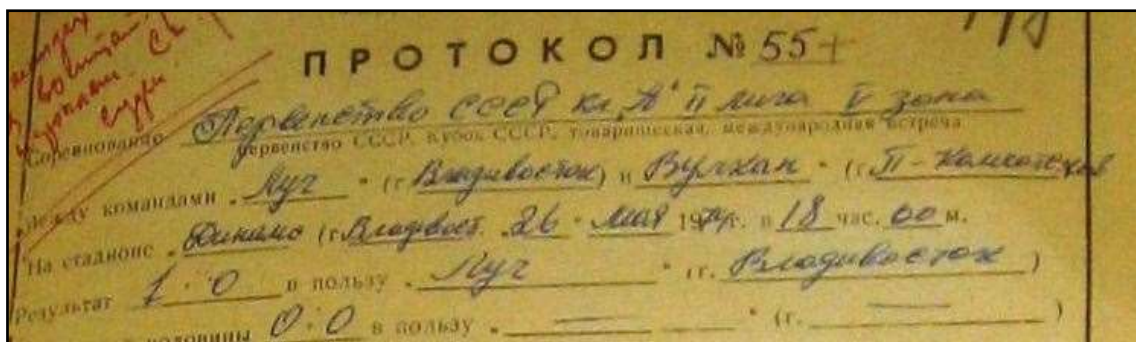 ПРОТОКОЛ № 55
Соревнование Первенство СССР кл. "А" II лига V зона
первенство СССР, кубок СССР, товарищеская, международная встреча
Между командами "Луч" (г. Владивосток) и "Вулкан" (г. П-Камчатский
На стадионе "Динамо (г. Владивост. 26" мая 19 г. в 18 час. 00 м.
Результат 1:0 в пользу "Луч" (г. Владивосток)
половины 0:0 в пользу "—" (г. —)